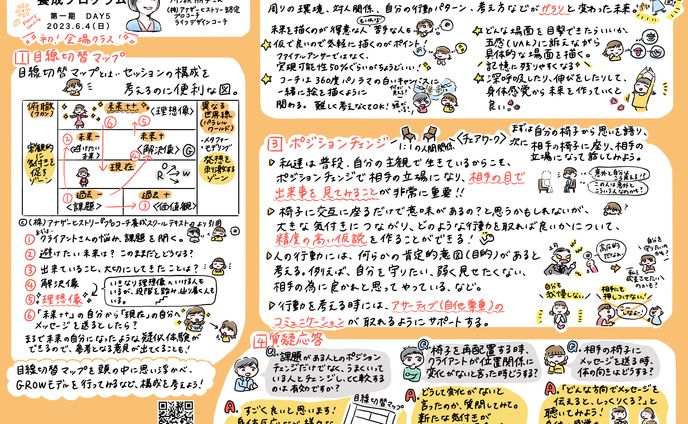 養成プログラム
第一期 DAY5
2023.6.4(日)
(株)アナザーヒストリー認定
プロコーチ
ライフデザインコーチ
初!会場クラス
1 目線切替マップ
目線切替マップとは、セッションの構成を
考えるのに便利な図。
俯瞰職
未来++
<理想像>
異なる
世界線
(パラレル
ワールド)
客観的
に気付き
を促す
ゾーン
未来−
避けたい
未来
未来+
<解決像>
G
メタファー
モデリング
現在
O
R
W
発想
を刺激する
ゾーン
過去−
<課題>
過去+
<価値観>
©(株)アナザーヒストリープロコーチ養成スクールテキストより引用
まずは…
① クライアントさんの悩み、課題を聞く。
② 避けたい未来は?このままだとどうなる?
③ 出来ていること、大切にしてきたことは?
④ 解決像
⑤ 理想像
いきなり理想像へいける人も
いるが、段階を踏み、辿り着く人も
いる。
⑥「未来++」の自分から「現在」の自分へ
メッセージを送るとしたら?
まるで未来の自分になったような疑似体験が
できるので、参考となる意見が出てくることも!
目線切替マップを頭の中に思い浮かべ、
GROWモデルを行ってみるなど、構成を考えよう!
周りの環境、対人関係、自分の行動パターン、考え方などがガラリと変わった未来。
未来を描くのが得意な人 苦手な人も
もいれば
仮で良いので気軽に描くのがポイント
ファイナルアンサーではなく、
実現可能性50%ぐらいがちょうどいい!
コーチは360度パノラマの白いキャンバスに
一緒に絵を描くように
関わる。難しく考えなくてOK!
どんな場面を目撃できたらいいか、
五感(VAK)に訴えながら
具体的な場面を描く。
記憶に残りやすくなる
深呼吸したり、伸びをしたりして、
身体感覚から未来を作っていくと
良い。
3 ポジションチェンジ
1:1の人間関係
<チェアワーク>
まずは自分の椅子から思いを語り、
次に相手の椅子に座り、相手の
立場になって話してみよう。
私達は普段、自分の主観で生きているからこそ、
ポジションチェンジで相手の立場になり、相手の目で
出来事を見てみることが非常に重要!!
椅子に交互に座るだけで意味があるの?と思うかもしれないが、
大きな気付きにつながり、どのような行動を取れば良いかについて、
精度の高い仮説を作ることができる!
人の行動には、何らかの肯定的意図(目的)があると
考える。例えば、自分を守りたい、弱く見せたくない、
相手の為に良かれと思ってやっている、など。
行動を考える時には、アサーティブ(自他尊重)の
コミュニケーションが取れるようにサポートする。
高圧的
だなぁ
自分を
守りたいの
かも?
自分も
我慢しない
相手にも
押しつけない!
4 質疑応答
Q. 課題がある人とのポジション
チェンジだけでなく、うまくいって
いる人とチェンジし、CC較するの
は有効ですか?
A. すごく良いと思います!
目線切替マップ
Q. 椅子を再配置する時、
クライアントが位置関係に
変化がないと言った時どうする?
A. どうして変化がないと
言ったのか、質問してみて。
新たな気付きが
Q. 相手の椅子に
メッセージを送る時、
体の向きはどうする?
A. 「どんな方向でメッセージを
伝えると、しっくりくる?」と
聴いてみよう!